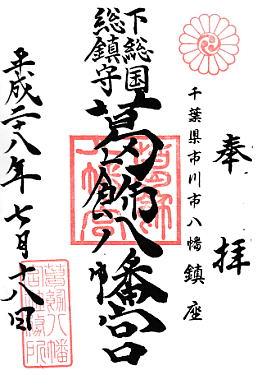 奉拝
千葉県市川市八幡鎮座
下総国
総鎮守
葛飾八幡宮
平成二十八年七月十八日
葛飾八幡宮
葛飾八幡宮社務所